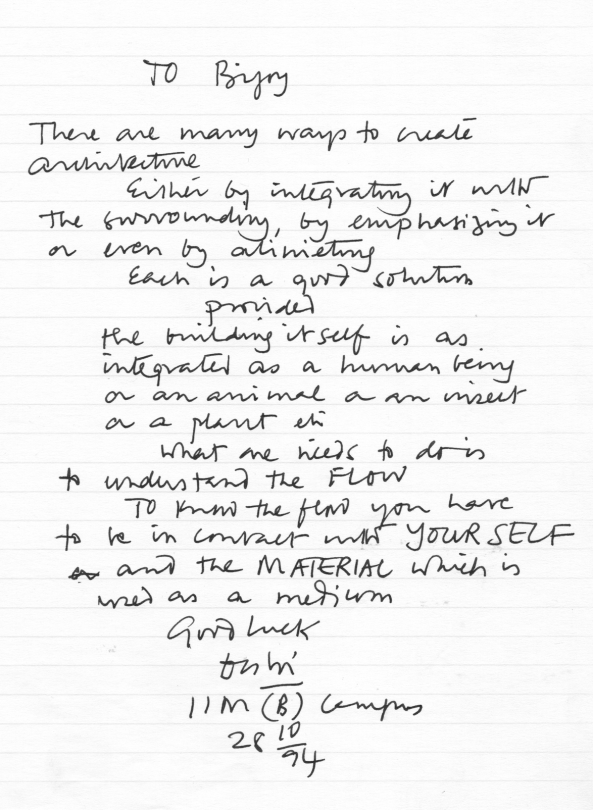 TO Bijoy
There are many ways to create
architecture
Either by integrating it with
the surrounding, by emphasizing it
or even by
Each is a good solution
provided
the building itself is as
integrated as a human being
or an animal or an insect
or a plant etc
What one needs to do is
to understand the FLOW
TO Know the flow you have
to be in contact with YOURSELF
and the MATERIAL which is
used as a medium
Good Luck
Doshi
IIM (B) Campus
28 10/94